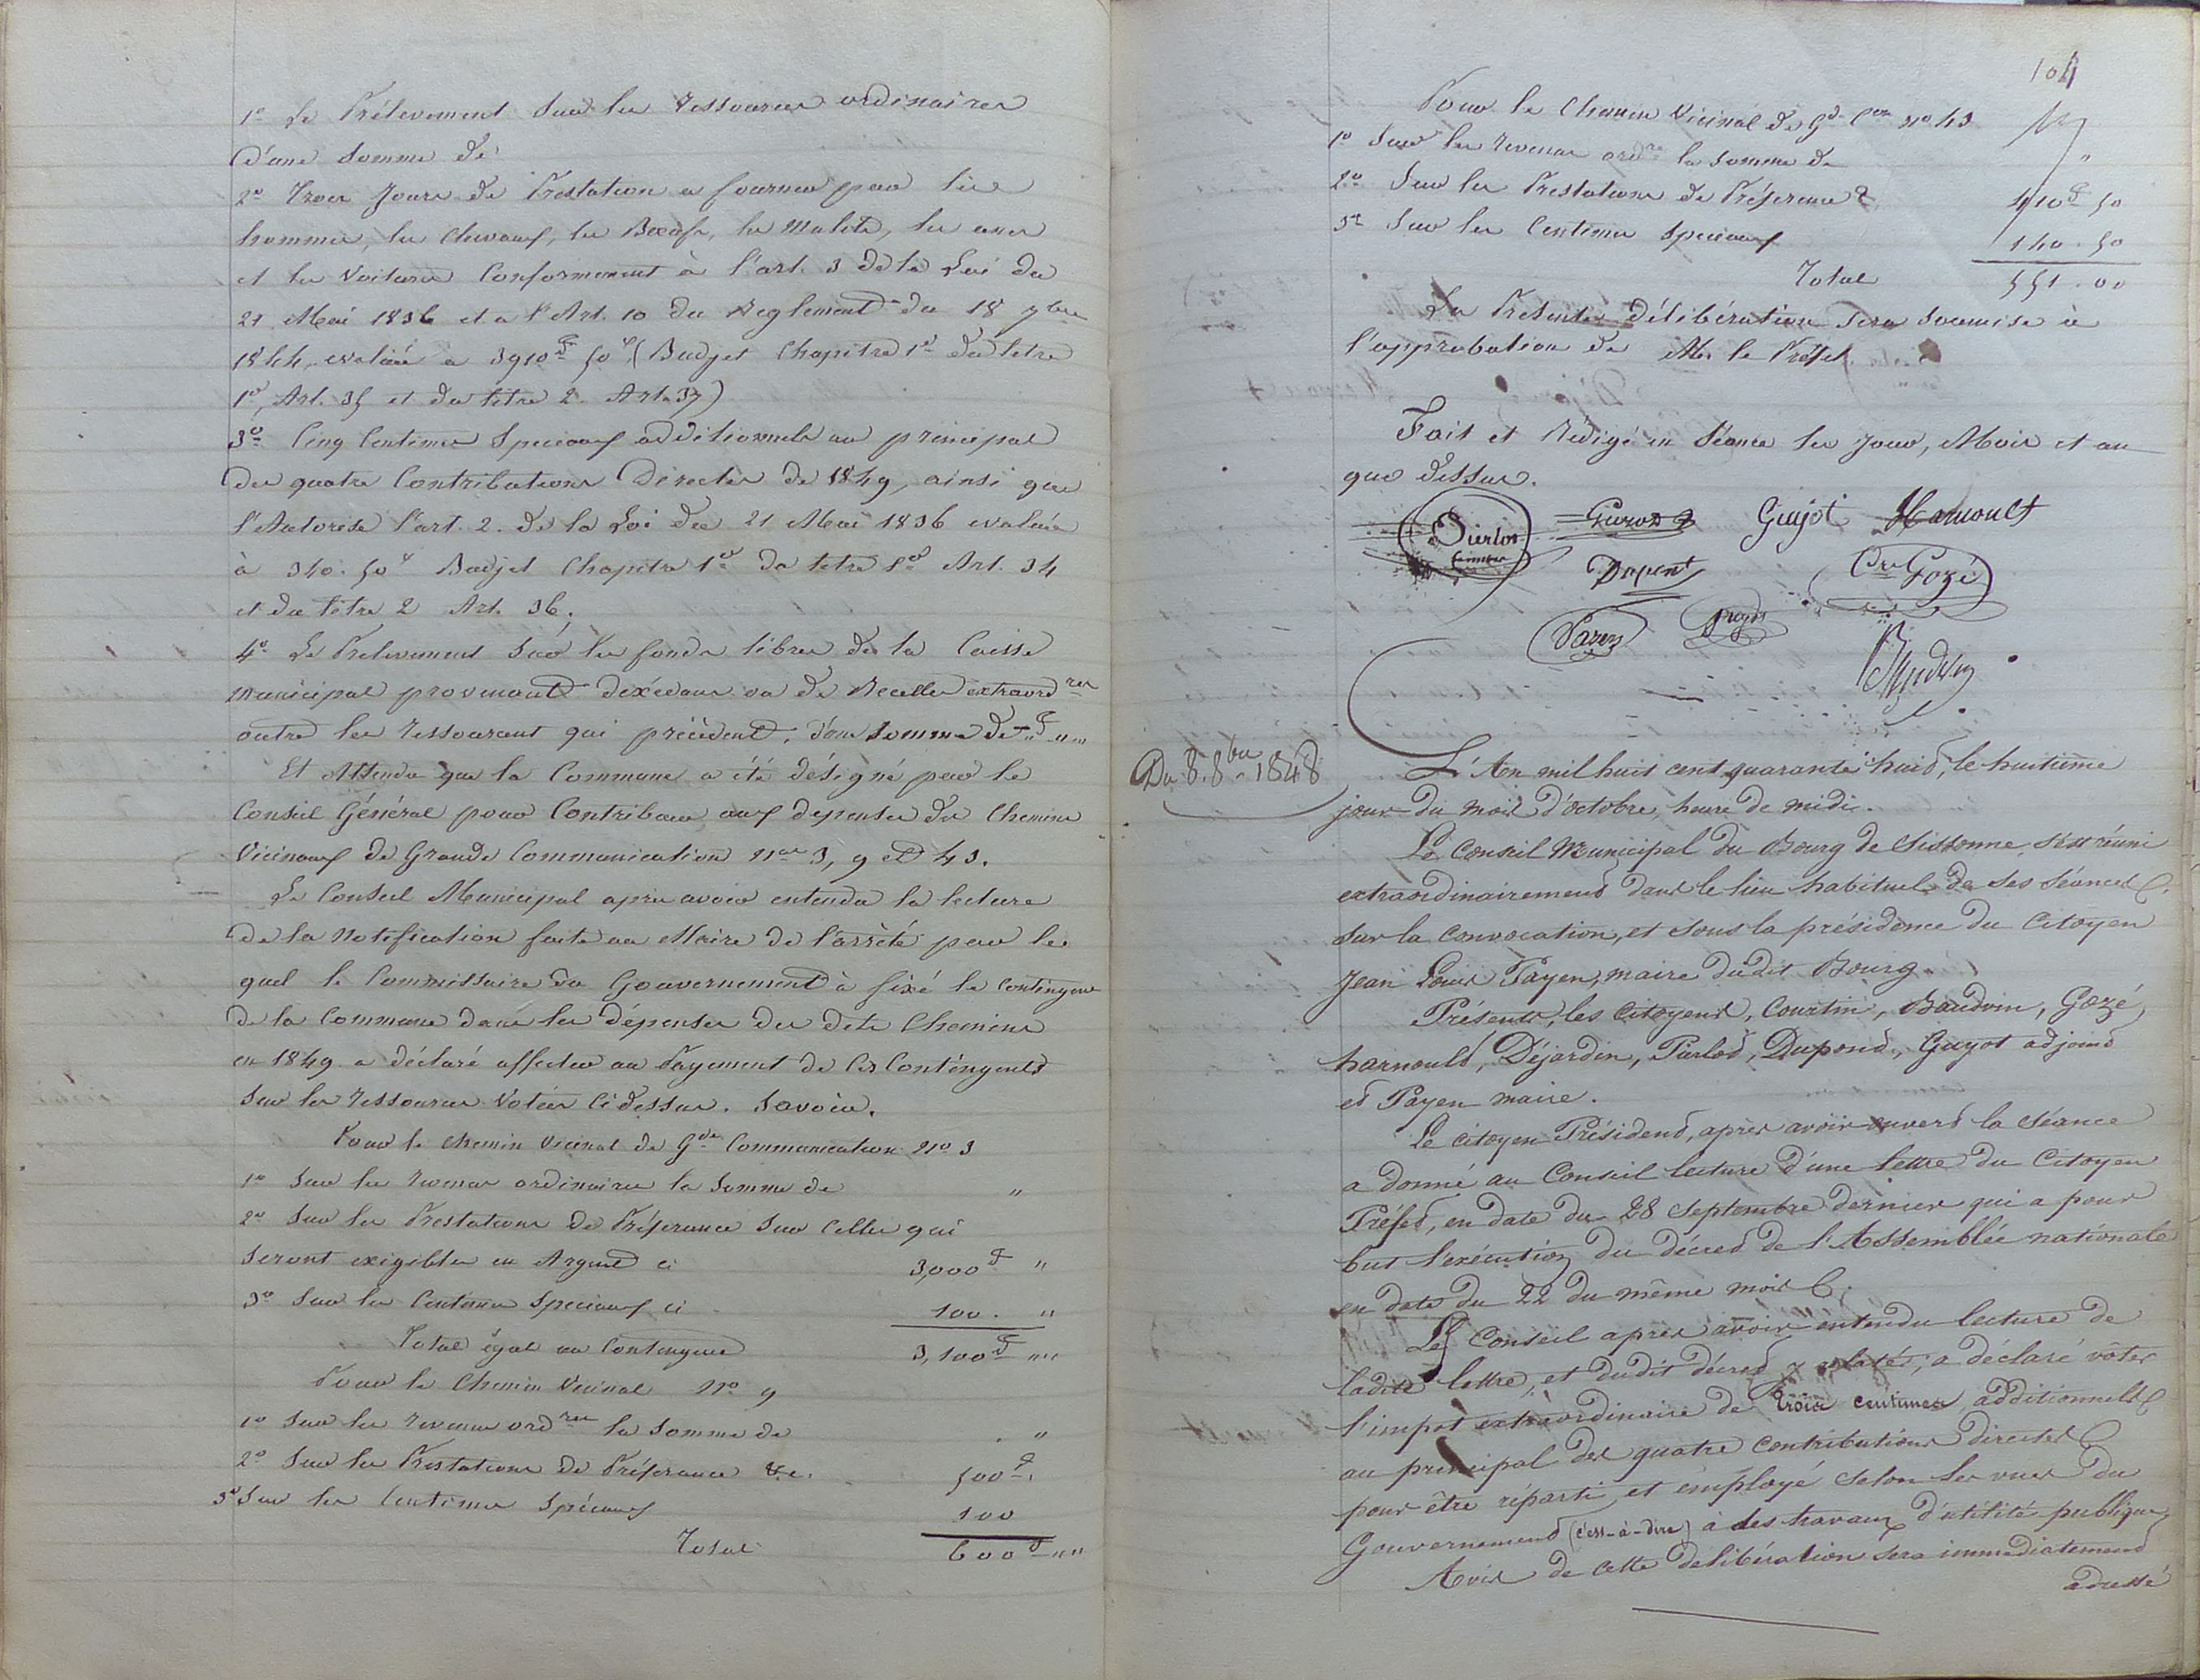 1° Le Prélevement sur les ressources ordinaires
d'une somme de
2° Trois jours de Prestation a fournir par les
hommes, les chevaux, les Bœufs, les mulets, les anes
et les voitures conformement à l'art. 3 de la Loi du
21 Mai 1836 et a l'Art. 10 du Reglement du 18 7bre
1844, evaluée a 3910 F 50 c (Budjet Chapitre 1er du titre
1er, Art. 35 et du titre 2 Art. 37)
3° Cinq centimes speciaux additionnels au principal
des quatre Contributions Directes de 1849, ainsi que
l'Autorise l'art. 2. de la Loi du 21 Mai 1836 evaluée
à 340. 50 c Budjet Chapitre 1er du titre 1er Art. 34
et du titre 2 Art. 36.
4° Le Prelevement sur les fonds libres de la Caisse
municipal provenant d'excedans ou de Recettes extraord res
outre les ressources qui précèdent, d'une somme de " F " ""
Et Attendu que la Commune a été désigné par le
Conseil Général pour Contribuer aux depenses des Chemins
Vicinaux de Grande Communication nos 3, 9 et 43.
Le Conseil Municipal après avoir entendu la lecture
de la Notification faite au Maire de l'arrêté par le
quel le Commissaire du Gouvernement à fixé le contingent
de la Commune dans les dépenses des dits Chemins
en 1849 a déclaré affecter au Payement de ces Contingents
sur les ressources votées ci dessus. Savoir.
Pour le chemin vicinal de Gde Communication N° 3
1° Sur les revenus ordinaires la somme de "
2° Sur les Prestations de Préférence sur celles qui
seront exigibles en Argent ci 3,000 F "
3° Sur les Centimes speciaux ci 100 . "
Total égal au Contingent 3,100 F ""
Pour le Chemin Vicinal N° 9
1° Sur les revenus ord res la somme de "
2° Sur les Prestations de Préférence &c. 500 F
3° Sur les Centimes spéciaux 100
Total 600 F ""
104
Pour le Chemin Vicinal de Gde Con n° 43
1° Sur les revenus ord res la somme de "
2° Sur les Prestations de Préférence & 410 F 50
3° Sur les Centimes speciaux 140 . 50
Total 551 . 00
La Présente délibération sera soumise à
l'approbation de Mr le Préfet.
Fait et Rédigé en séance les jour, Mois et an
que dessus.
Guyot Harnoult
Dupont Gozé
Du 8. 8bre 1848
L'An mil huit cent quarante huit, le huitième
jour du mois d'octobre, heure de midi.
Le Conseil Municipal du Bourg de Sissonne, s'est réuni
extraordinairement dans le lieu habituel de ses séances
sur la convocation, et sous la présidence du Citoyen
Jean Louis Payen, maire dudit Bourg.
Présents, les Citoyens, Courtin, Baudoin, Gozé,
harnould, Déjardin, Pierlot, Dupond, Guyot adjoint
et Payen maire.
Le citoyen Président, après avoir ouvert la séance
a donné au Conseil lecture d'une lettre du Citoyen
Préfet, en date du 28 septembre dernier qui a pour
but l'exécution du décret de l'Assemblée nationale
en date du 22 du même mois.
Le Conseil après avoir entendu lecture de
ladite lettre, et dudit décret y relaté, a déclaré voter
l'impot extraordinaire de trois centimes additionnels
au principal des quatre contributions directes
pour être réparti et employé selon les vues du
Gouvernement (c'est-à-dire) à des travaux d'utilité publique
Avis de cette delibération sera immédiatement
adressé